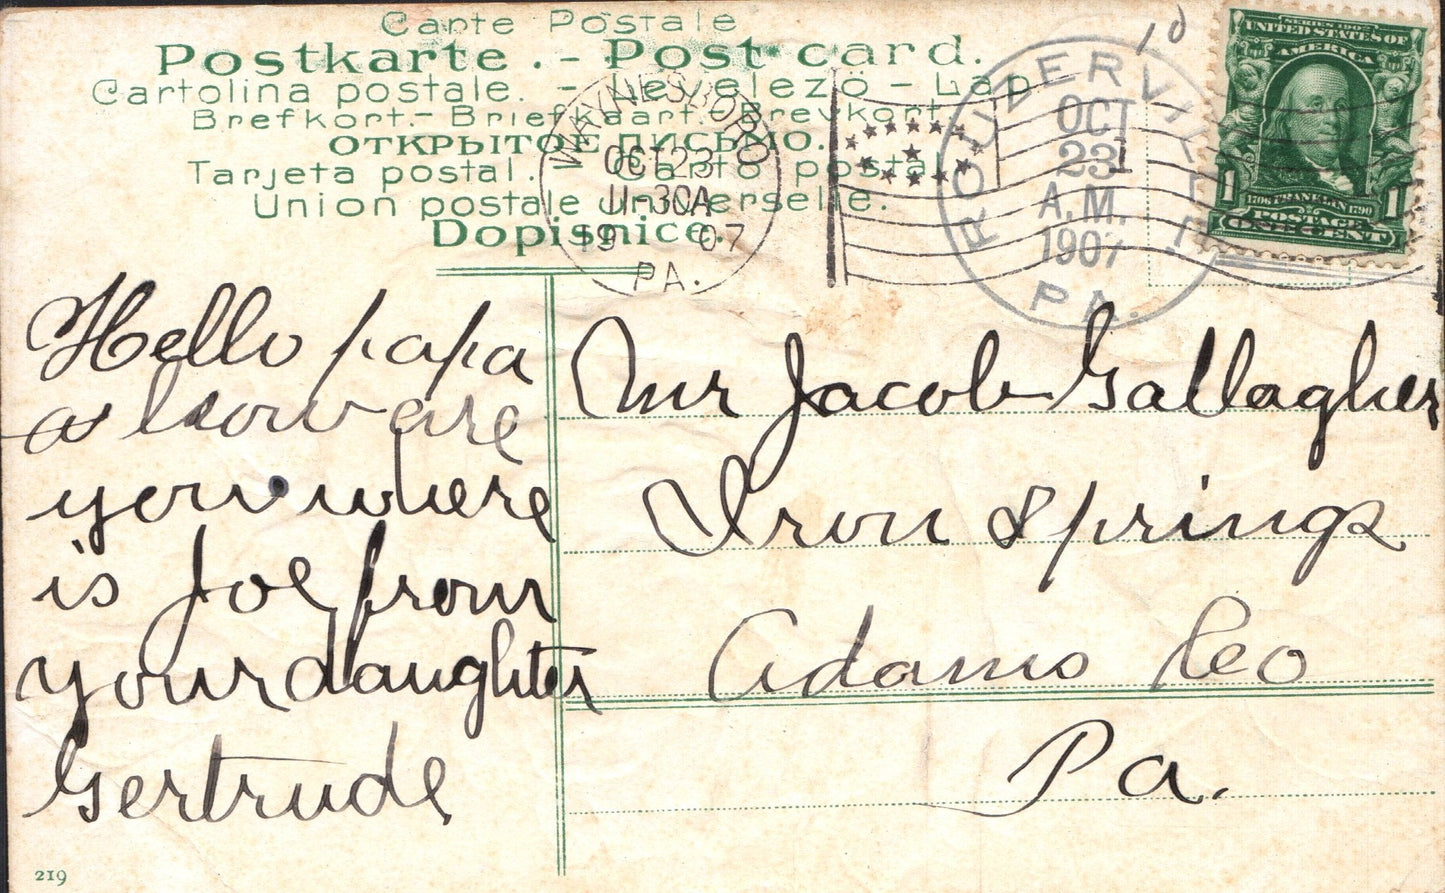 Carte Postale
Postkarte. - Post card.
Cartolina postale. - Levelezö - Lap
Brefkort. - Briefkaart. - Brevkort.
ОТКРЫТОЕ ПИСЬМО.
Tarjeta postal. - Carta postal
Union postale universelle.
Dopisnice.
WAYNESBORO
OCT 23
11-30A
19 07
PA.
ROUZERVILLE
OCT
23
A.M.
1907
PA.
10
SERIES 1902
UNITED STATES OF
AMERICA
1 1
1706 FRANKLIN 1790
POSTAGE
ONE CENT
Hello papa
how are
you where
is Joe from
your daughter
Gertrude
Mr Jacob Gallagher
Iron Springs
Adams Co
Pa.
219